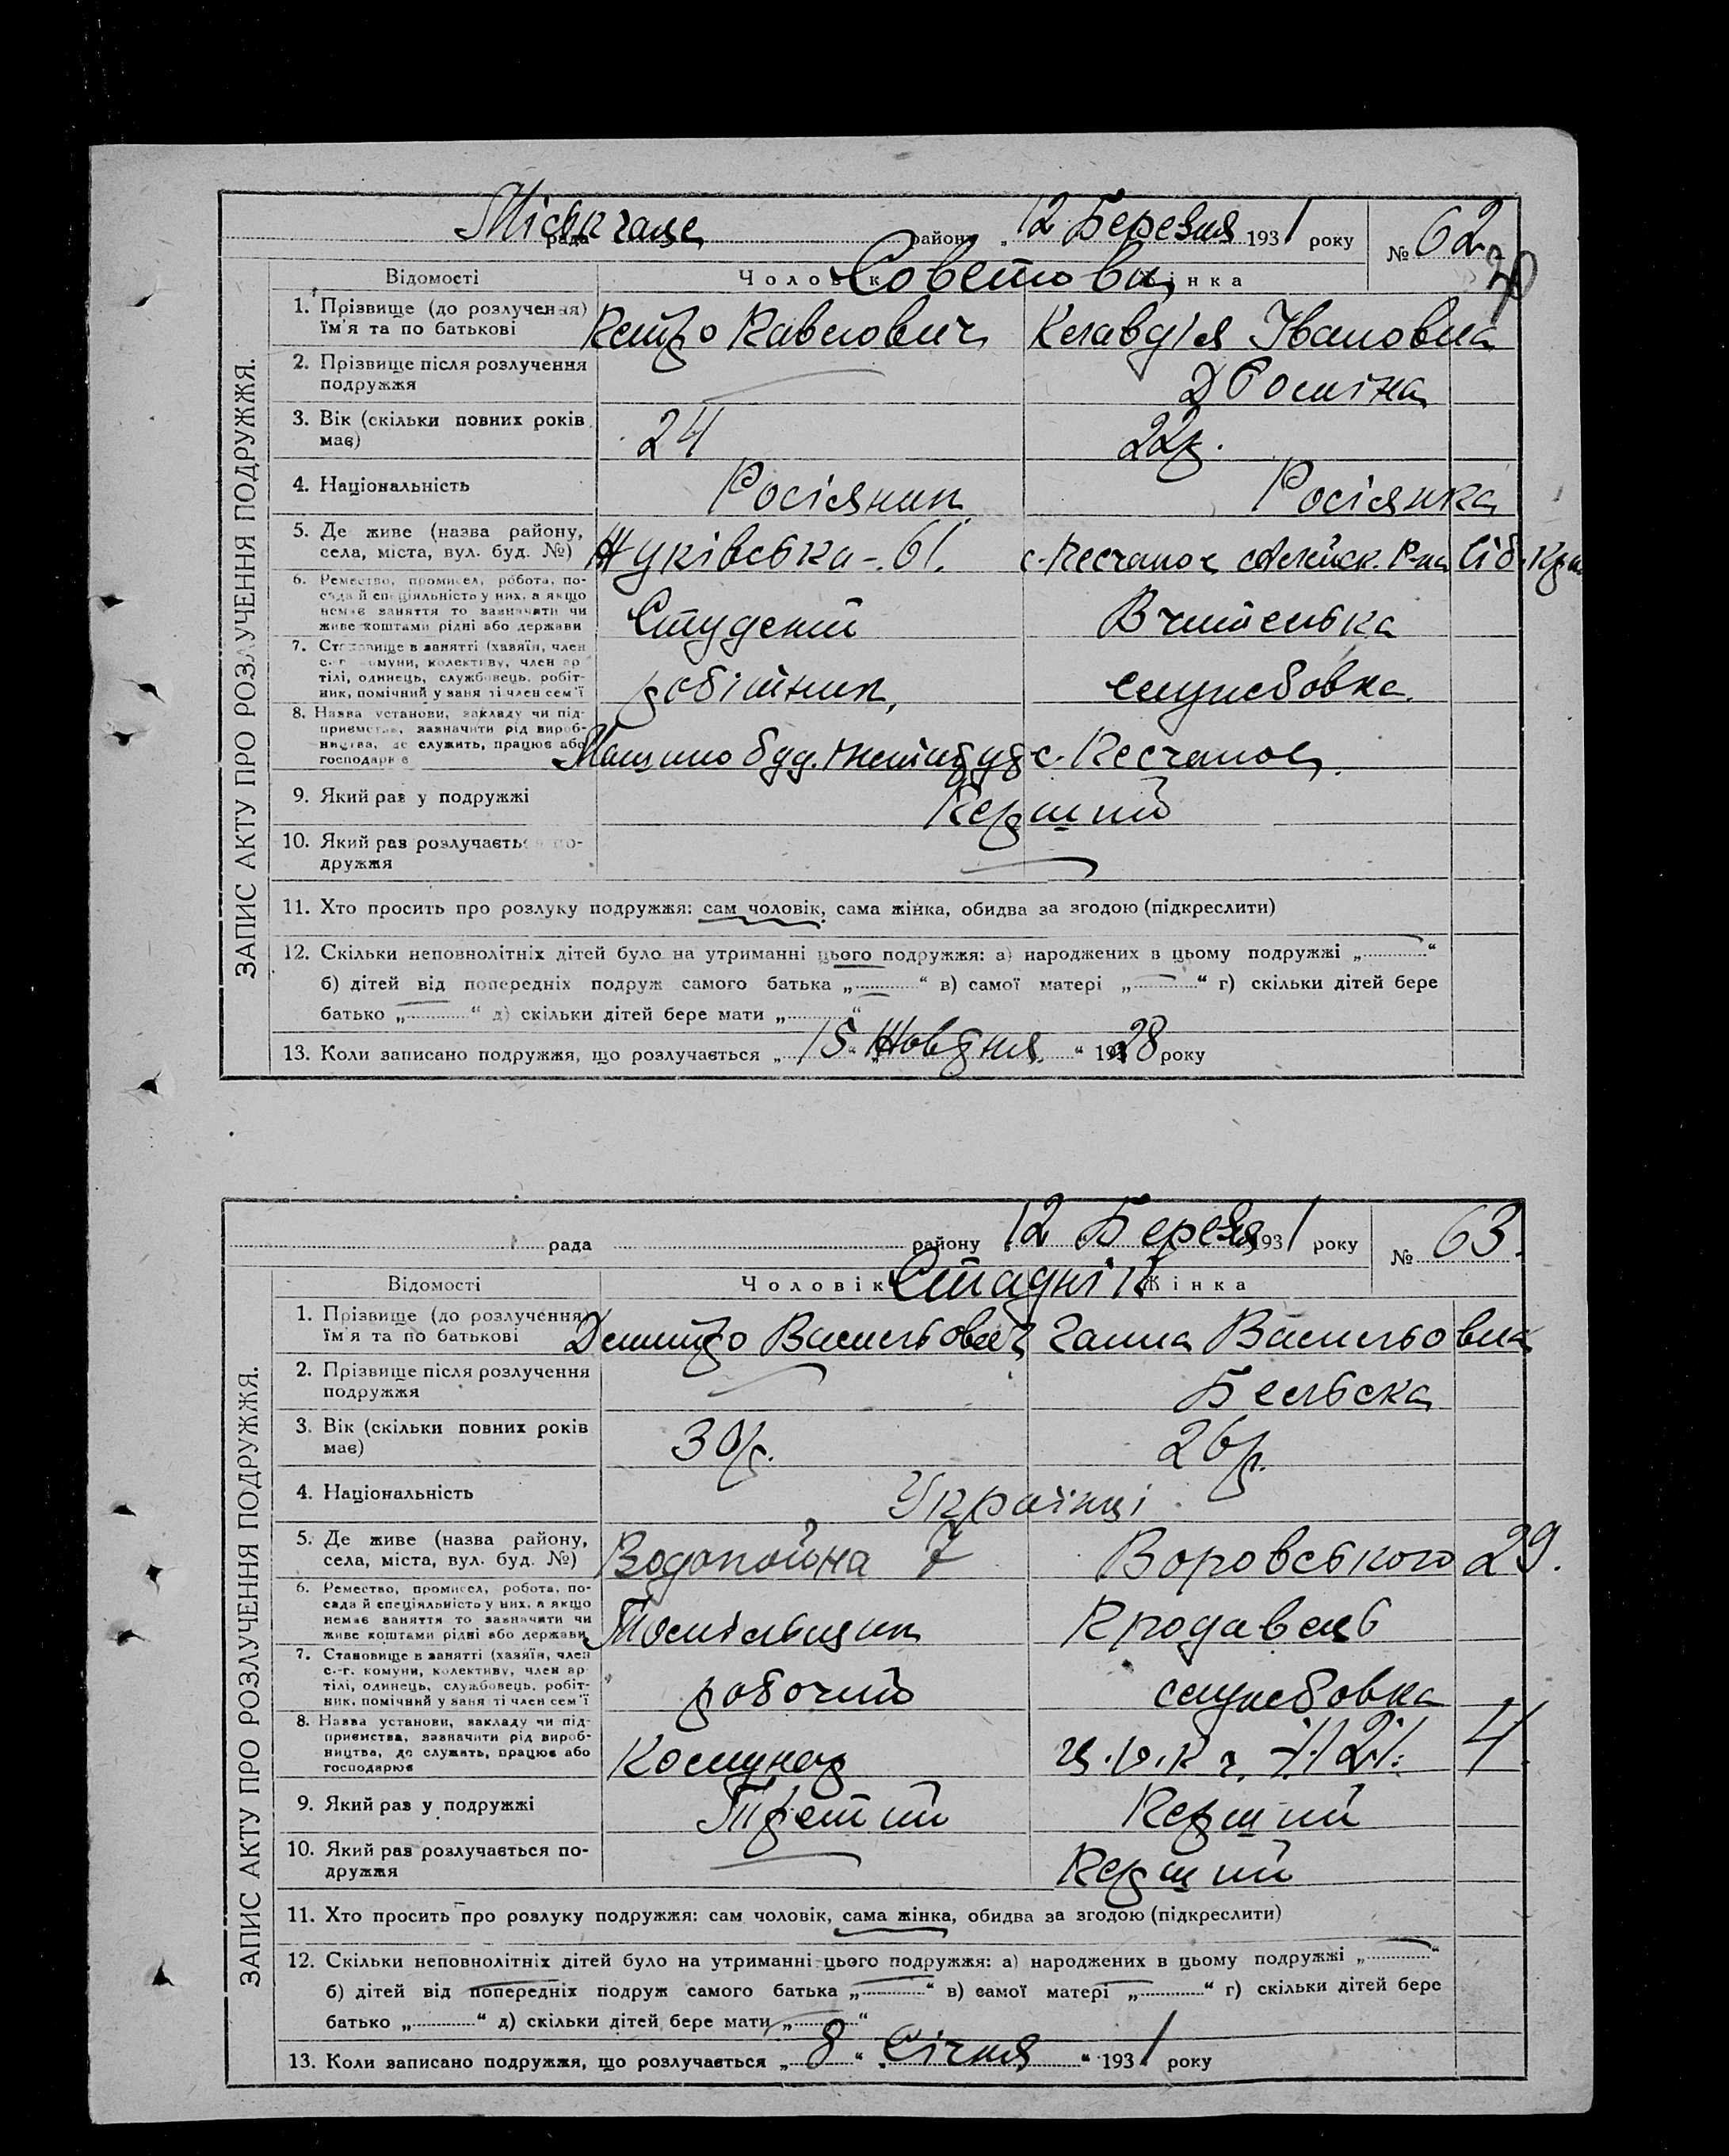 Міськзагс рада району „12 Березня 1931 року № 62
30
Відомості Чоловік Жінка
Советови
1. Прізвище (до розлучення) їм'я та по батькові
Петро Павлович Клавдія Івановна
2. Прізвище після розлучення подружжя
3. Вік (скільки повних років має)
24 22р.
4. Національність
Росіянин Росіянка
5. Де живе (назва району, села, міста, вул. буд. №)
Жуківська-61.
6. Ремество, промисел, робота, посада й спеціяльність у них, а якщо немає заняття то зазначити чи живе коштами рідні або держави
Студент Вчителька
7. Становище в занятті (хазяїн, член с.-г. комуни, колективу, член артілі, одинець, службовець, робітник, помічний у занятті член сем'ї
робітник, службовка.
8. Назва установи, закладу чи підприємства, зазначити рід виробництва, де служить, працює або господарює
Машинобуд. с. Песчаное.
9. Який раз у подружжі
Перший
10. Який раз розлучається подружжя
11. Хто просить про розлуку подружжя: сам чоловік, сама жінка, обидва за згодою (підкреслити)
12. Скільки неповнолітніх дітей було на утриманні цього подружжя: а) народжених в цьому подружжі „ “
б) дітей від попередніх подруж самого батька „ “ в) самої матері „ “ г) скільки дітей бере
батько „ “ д) скільки дітей бере мати „ “
13. Коли записано подружжя, що розлучається „15“ Жовтня “ 1928 року
ЗАПИС АКТУ ПРО РОЗЛУЧЕННЯ ПОДРУЖЖЯ.
рада району „12 Березня 1931 року № 63.
Відомості Чоловік Жінка
Стадnік
1. Прізвище (до розлучення) їм'я та по батькові
Дмитро Васильович Ганна Васильовна
2. Прізвище після розлучення подружжя
Бельска
3. Вік (скільки повних років має)
30р. 26р.
4. Національність
Українці
5. Де живе (назва району, села, міста, вул. буд. №)
Водопойна 7 Воровського 29.
6. Ремество, промисел, робота, посада й спеціяльність у них, а якщо немає заняття то зазначити чи живе коштами рідні або держави
Продавець
7. Становище в занятті (хазяїн, член с.-г. комуни, колективу, член артілі, одинець, службовець, робітник, помічний у занятті член сем'ї
робочий службовка
8. Назва установи, закладу чи підприємства, зазначити рід виробництва, де служить, працює або господарює
Комунар
9. Який раз у подружжі
Третий Перший
10. Який раз розлучається подружжя
Перший
11. Хто просить про розлуку подружжя: сам чоловік, сама жінка, обидва за згодою (підкреслити)
12. Скільки неповнолітніх дітей було на утриманні цього подружжя: а) народжених в цьому подружжі „ “
б) дітей від попередніх подруж самого батька „ “ в) самої матері „ “ г) скільки дітей бере
батько „ “ д) скільки дітей бере мати „ “
13. Коли записано подружжя, що розлучається „8“ „Січня “ 1931 року
ЗАПИС АКТУ ПРО РОЗЛУЧЕННЯ ПОДРУЖЖЯ.